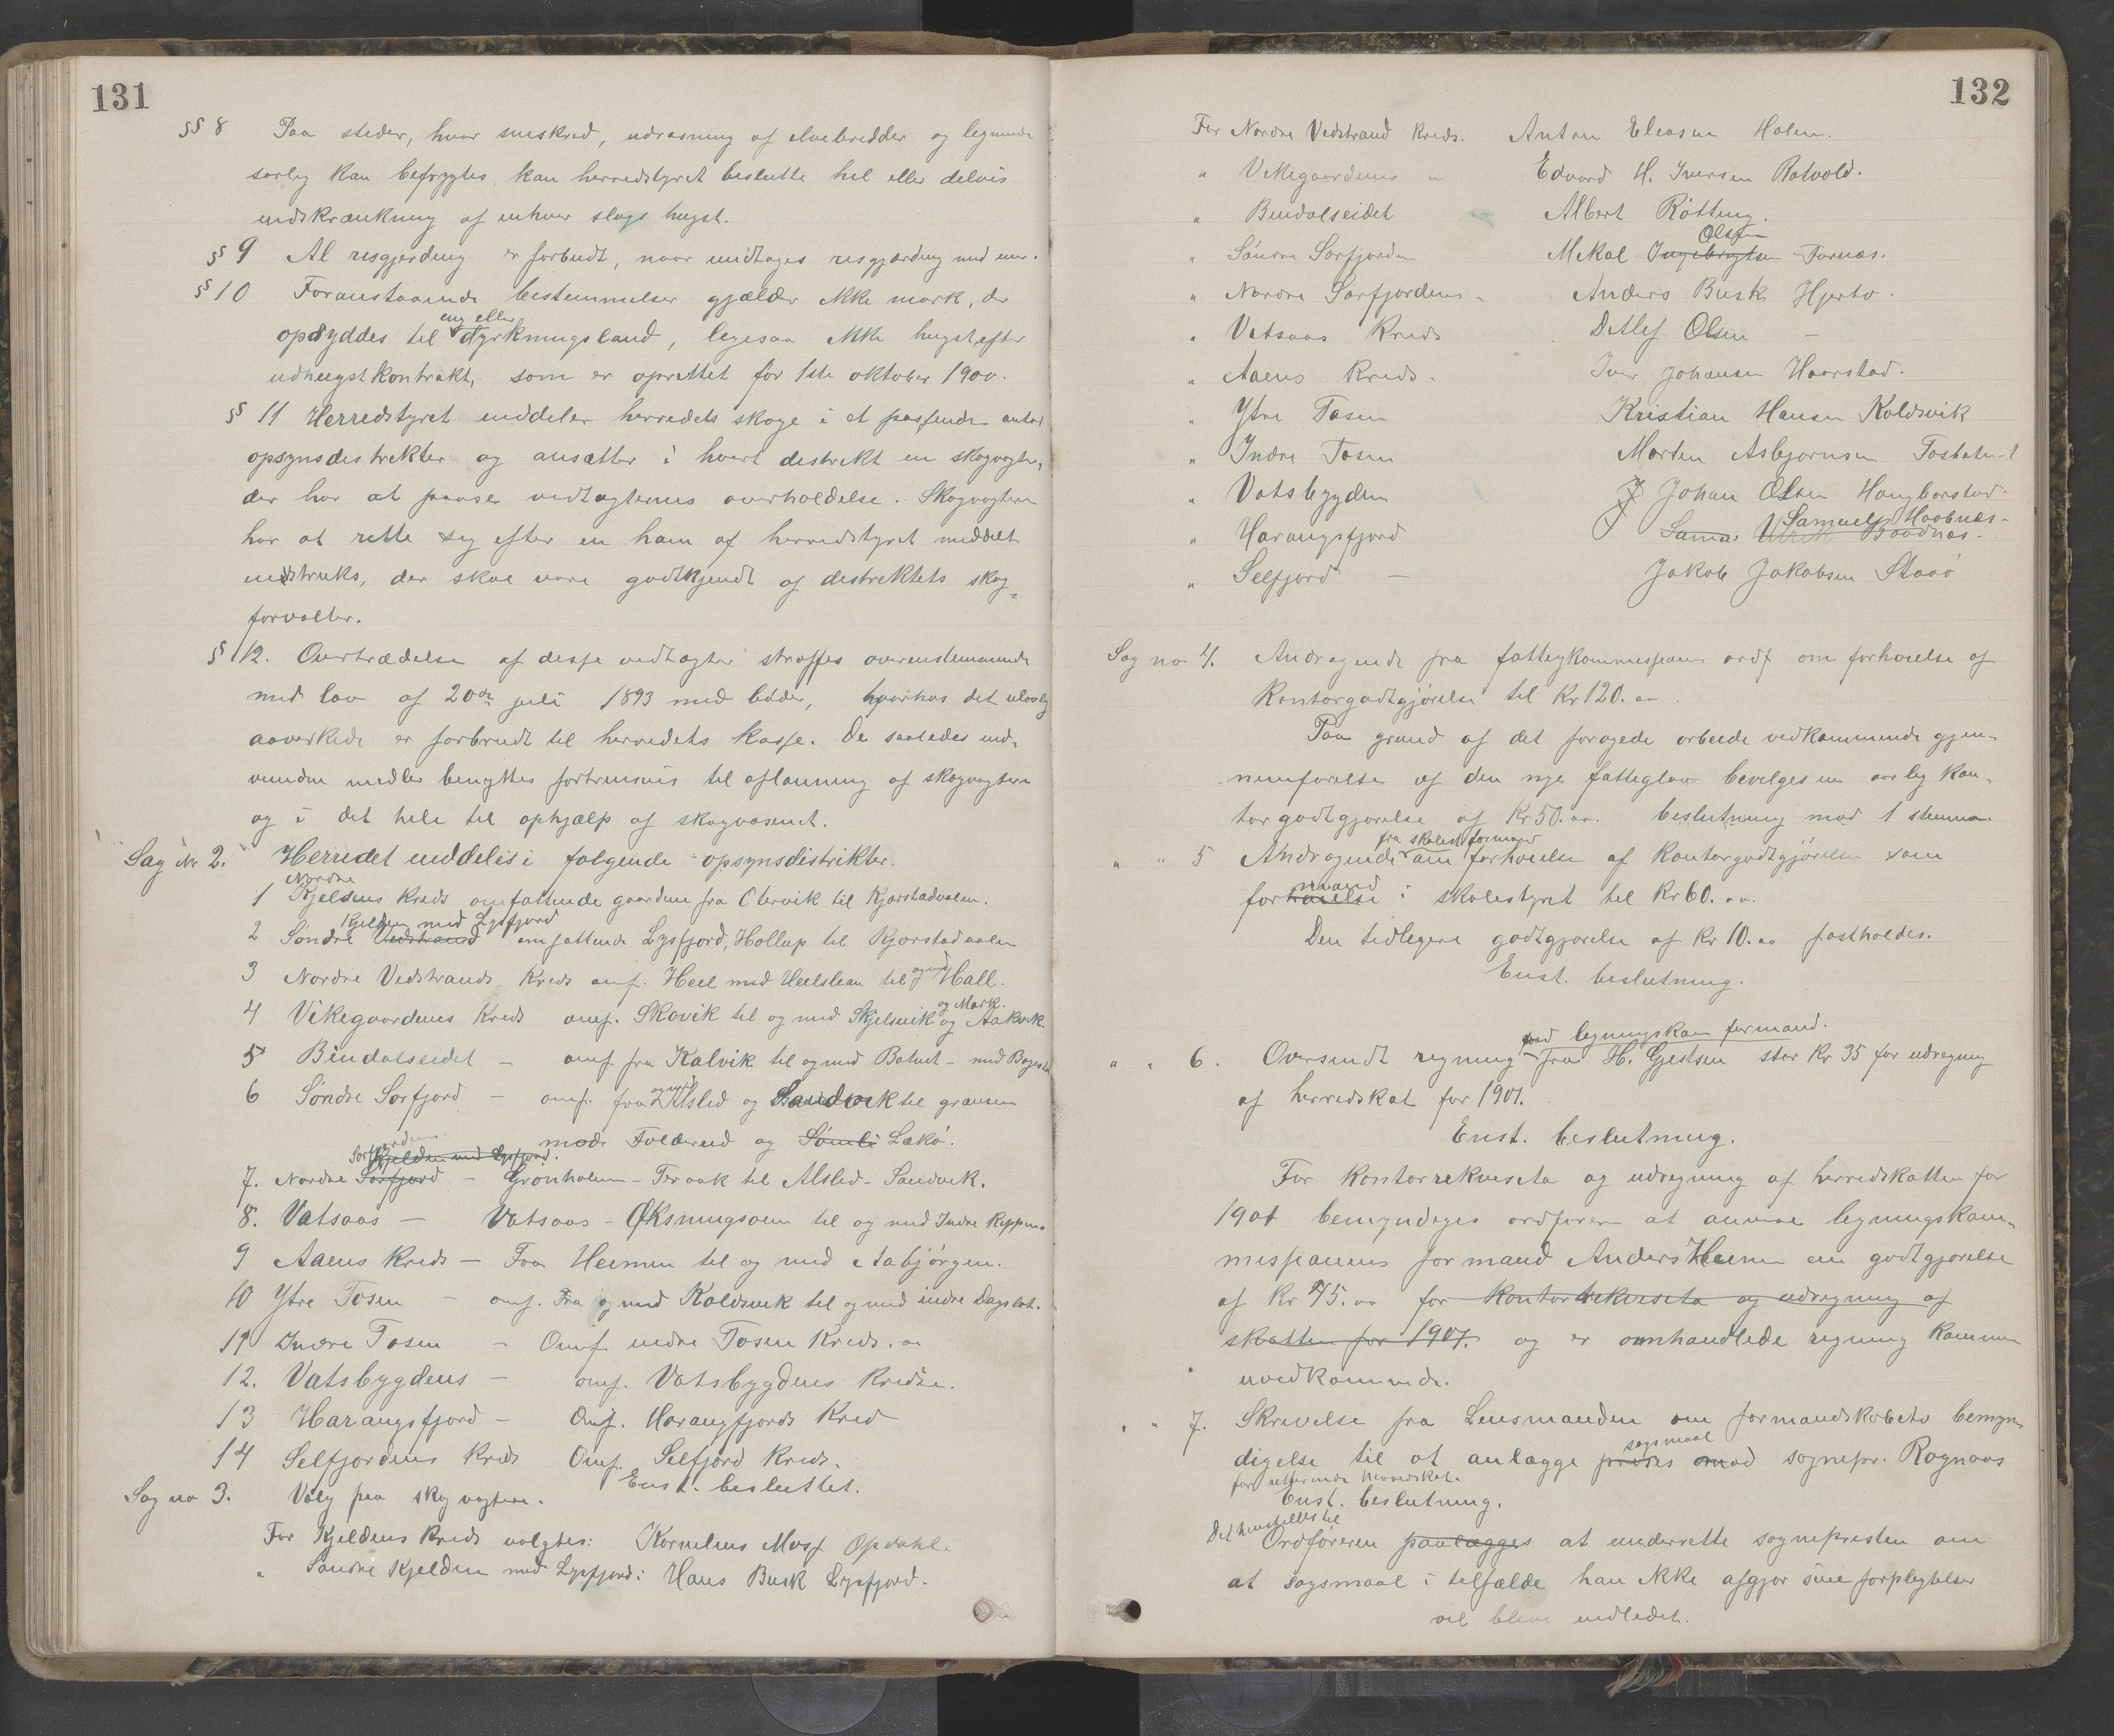 131
§§ 8 Paa steder, hvor sneskred, udrasning af elvebredder og lignende
særlig kan befrygtes, kan herredstyret beslutte hel eller delvis
indskrænkning af enhver slags hugst.
§§ 9 Al risgjerding er forbudt, naar undtages risgjærding med ener.
§§ 10 Foranstaaende bestemmelser gjælder ikke mark, der
eng eller
opdyddes til dyrkningsland, ligesaa ikke hugst efter
udhugstkontrakt, som er oprettet før 1ste oktober 1900.
§§ 11 Herredstyret inddeler herredets skoge i et passende antal
opsynsdistrikter og ansætter i hvert distrikt en skogvogter,
der har at paase vedtægternes overholdelse. Skogvogteren
har at rette seg efter en ham af herredstyret meddelt
instruks, der skal være godtkjendt af distriktets skog-
forvalter.
§ 12. Overtrædelse af disse vedtægter straffes overenstemmende
med lov af 20de juli 1893 med bøder, hvorhos det ulovlig
aaverkede er forbrudt til herredets kasse. De saaledes ind-
vundne midler benyttes fortrinsvis til aflønning af skogvogtere
og i det hele til ophjælp af skogvæsenet.
Sag Nr 2. Herredet inddeles i følgende opsynsdistrikter.
Nordre
1 Kjeldens kreds omfattende gaardene fra Otervik til Kjørstadvalen.
Kjelden med Lysfjord
2 Søndre Vedstrand omfattende Lysfjord, Hollup til Kjørstadvalen
3 Nordre Vedstrands kreds omf. Heel med Heelslean til og med Hall.
og Mark.
4 Vikegaardenes kreds omf. Skovik til og med Skjelsvik og Aakvik.
5 Bindalseidet – omf fra Kalvik til og med Batnet – med
og med
6 Søndre Sørfjord – omf. fra Alsled og Sandvik til grænsen
mod Foldereid og Sømli Lækø.
Sørfjordens Kjelden med Lysfjord.
7. Nordre Sørfjord – Grønholmen – Teraak til Alsled – Sandvik.
8. Vatsaas – Vatsaas – Øksningsøen til og med Indre
9 Aaens kreds – Fra Heimen til og med Aabjørgen.
10 Ytre Tosen – omf. Fra og med Koldsvik til og med indre Dagslet.
11 Indre Tosen – Omf. indre Tosen Kreds.
12. Vatsbygdens – omf. Vatsbygdens kreds.
13 Harangsfjord – Omf. Harangfjords Kred
14 Selfjordens kreds Omf. Selfjord kreds.
Enst. besluttet.
Sag no 3. Valg paa skogvogtere.
For Kjeldens kreds valgtes: Kornelius Moss Opdahl.
" Søndre Kjelden med Lysfjord: Hans Busk Lysfjord.
132
For Nordre Vedstrand kreds. Anton Eliasen Holen.
" Vikegaardenes " Edvard H. Iversen Ratvold.
" Bindalseidet Albert Røtting.
Olsen
" Søndre Sørfjorden Mikal Ingebrigtsen Fornæs.
" Nordre Sørfjordens " Anders Busk Hjertø.
" Vatsaas kreds Detlef Olsen –
" Aaens kreds. Iver Johansen Haarstad.
" Ytre Tosen Kristian Hansen Koldsvik
" Indre Tosen Morten Asbjørnsen Tosbotn
" Vatsbygden Johan Olsen Haugbarstad.
Samuels Horsnæs.
" Harangsfjord Ulrik
" Selfjord – Jakob Jakobsen Staaø
Sag no 4. Andragende fra fattigkommissionens ordf om forhøielse af
kontorgodtgjørelse til Kr 120.
Paa grund af det forøgede arbeide vedkommende gjen-
nemførelse af den nye fattiglov bevilges en aarlig kon-
torgodtgjørelse af Kr 50. beslutning mod 1 stemme.
fra skolest formand
" " 5 Andragende om forhøielse af kontorgodtgjørelse som
mand
forhøielse i skolestyret til Kr 60.
Den tidligere godtgjørelse af Kr 10. fastholdes.
Enst. beslutning.
fhd ligningskom formand.
" " 6. Oversendt regning fra H. Gjestsen stor Kr 35 for udregning
af herredskat for 1901.
Enst. beslutning.
For kontorrekvisita og udregning af herredskatten for
1901 bemyndiges ordføren at anvise ligningskom-
missionens formand Anders Heimen en godtgjørelse
af Kr 75. for kontorrekvisita og udregning af
skatten for 1901. og er omhandlede regning kommunen
uvedkommende.
" " 7. Skrivelse fra Lensmanden om formandskabets bemyn-
sagsmaal
digelse til at anlægge proses mod sognepr. Rognaas
for resterende herredskat.
Enst. beslutning.
Det henstilles til
Ordføreren paalægges at underrette sognepresten om
at sagsmaal i tilfælde han ikke afgjør sine forpligtelser
vil blive indledet.